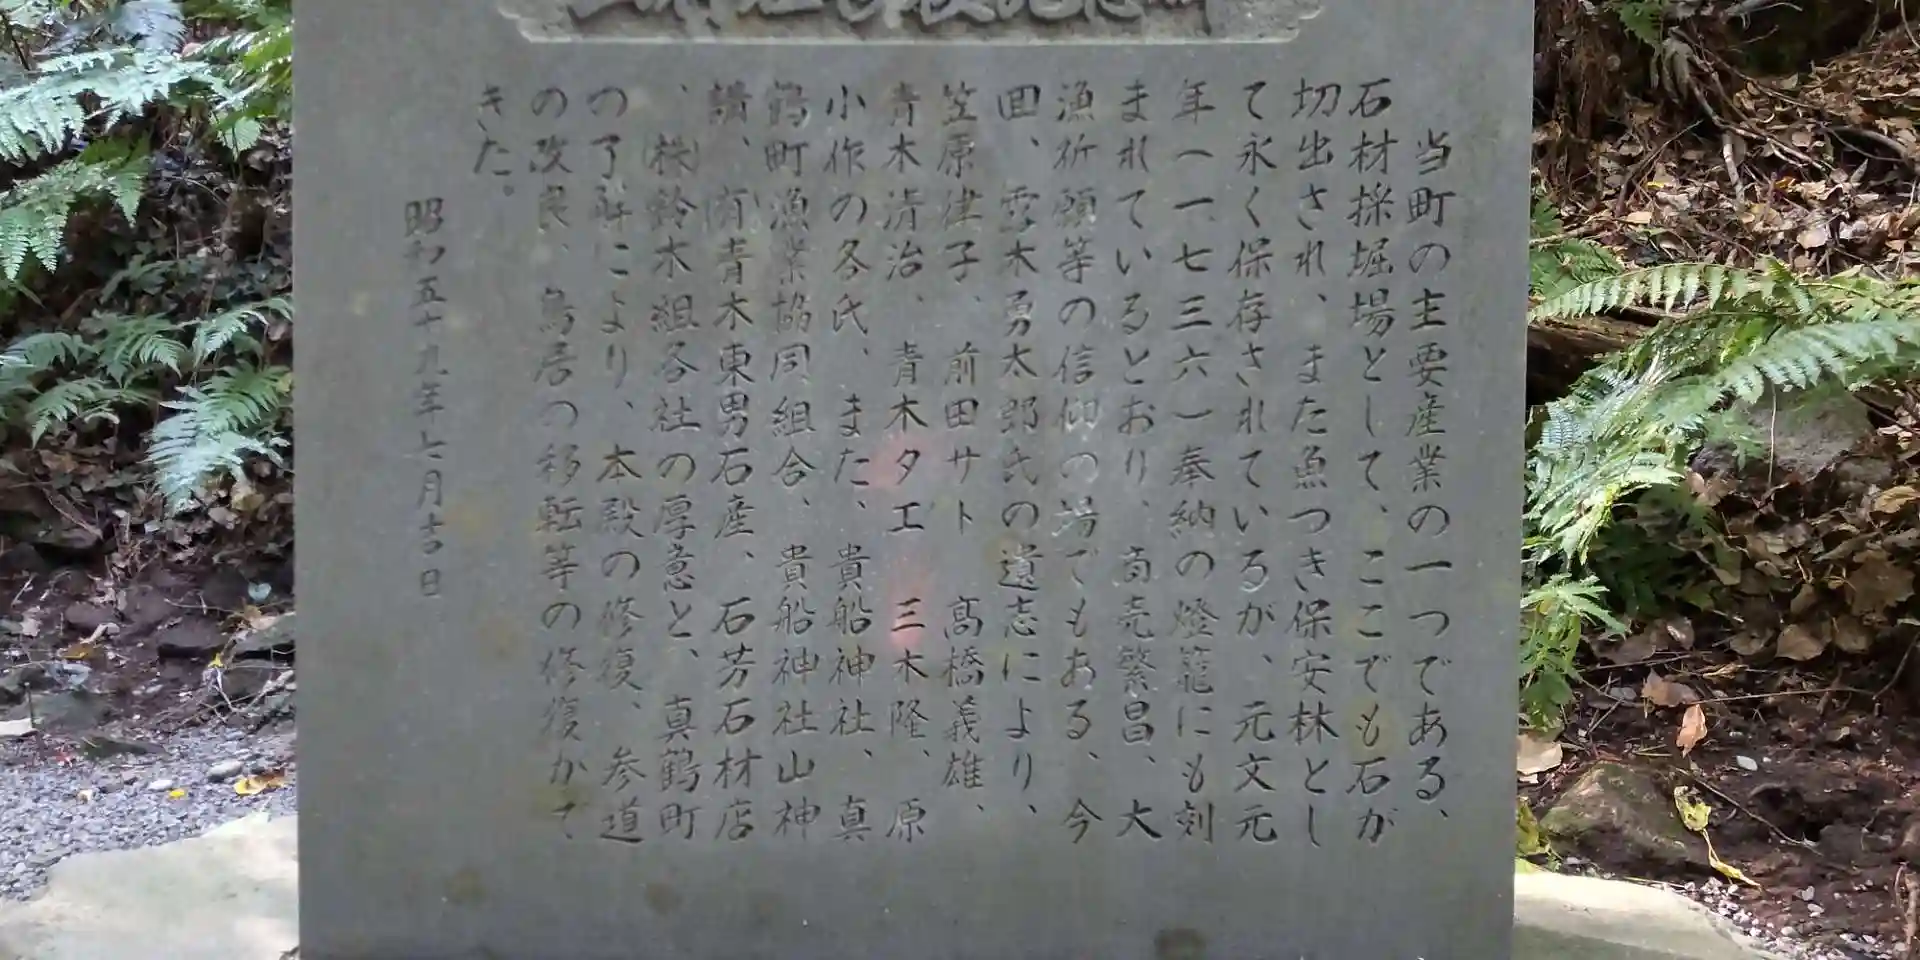 当町の主要産業の一つである、
石材採堀場として、ここでも石が
切出され、また魚つき保安林とし
て永く保存されているが、元文元
年（一七三六）奉納の燈籠にも刻
まれているとおり、商売繁昌、大
漁祈願等の信仰の場でもある、今
回、露木勇太郎氏の遺志により、
笠原律子、前田サト　髙橋義雄、
青木清治、青木タエ　三木隆、原
小作の各氏、また、貴船神社、真
鶴町漁業協同組合、貴船神社山神
講、(有)青木東男石産、石芳石材店
、(株)鈴木組各社の厚意と、真鶴町
の了解により、本殿の修復、参道
の改良、鳥居の移転等の修復がで
きた。
昭和五十九年七月吉日